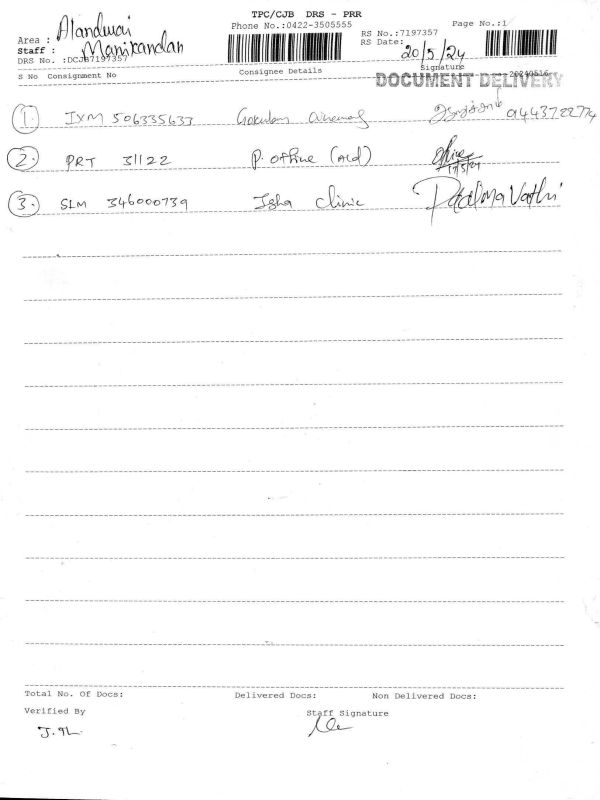 TPC/CJB DRS - PRR
Phone No.:0422-3505555
Page No.:1
Area : Alandurai
RS No.:7197357
Staff : Manikandan
RS Date: 20/5/24
DRS No. :DCJB7197357
Signature
S No Consignment No Consignee Details
20240516
DOCUMENT DELIVERY
1. IXM 506335633 Gokulam 9443722774
2. PRT 31122 P. office (Ald) office 17/5/24
3. SLM 346000739 Isha clinic Padma Vathi
Total No. Of Docs: Delivered Docs: Non Delivered Docs:
Verified By Staff Signature